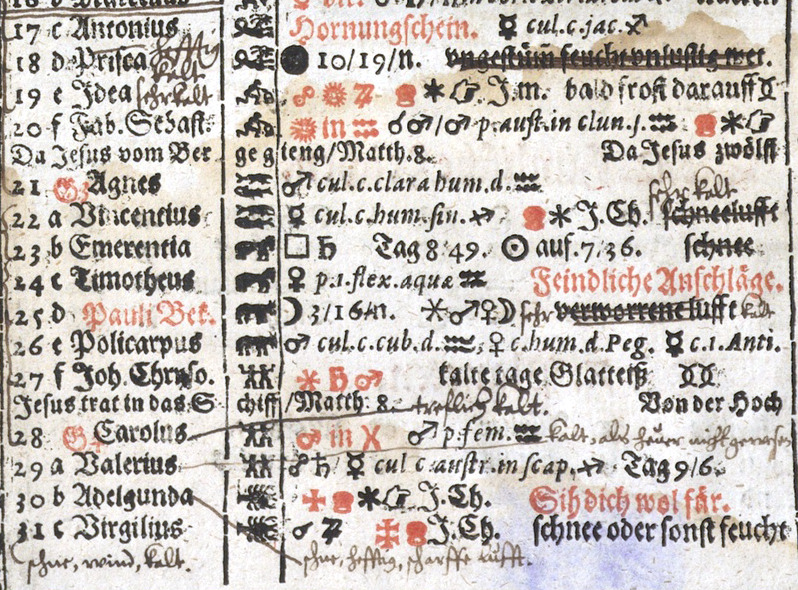 17 c Antonius Hornungschein. ☿ cul.c.jac.♐
18 d Prisca hefftig kelt ● 10/19/n. vngestüm feucht vnlustig wet.
19 e Idea sehr kelt ☍ ✹ ♃ ✶ J.m. bald frost darauff ♊
20 f Fab. Sebast. ✹ in ♒ ☌♂/♂ p.aust.in clun.♒ ✶
Da Jesus vom Berge gieng/Matth.8. Da Jesus zwölff
21 Agnes ♂ cul.c.clara hum.d.♒ sehr kelt
22 a Vincentius ☿ cul.c.hum.sin.♐ ✶ J.Ch. schneelufft
23 b Emerentia □ ♄ Tag 8.49. ☉ auf.7/36. schnee
24 c Timotheus ♀ p.1.flex.aquæ ♒ Feindliche Anschläge.
25 d Pauli Bek. ☽ 3/16/n. ✶♂♀☽ sehr verworrene lufft kalt
26 e Policarpus ♂ cul.c.cub.d.♒; ♀ c.hum.d.Peg. ☿ c.1.Anti.
27 f Joh. Chryso. ✶ ♄ ♂ kalte tage Glatteiß ♊♊
Jesus trat in das Schiff/Matth.8. trefflich kelt. Von der Hoch
28 Carolus ♂ in ♓ ♂ p.fem.♒ kelt, als heuer nicht gewesen
29 a Valerius ☍ ♄/☿ cul c.austr.in scap.♐ Tag 9/6.
30 b Adelgunda ✶ J.Ch. Sih dich wol für.
31 c Virgilius ☌ ♃ J.Ch. schnee oder sonst feucht
schne, wind, kelt. schne, hefftig, scharffe lufft.